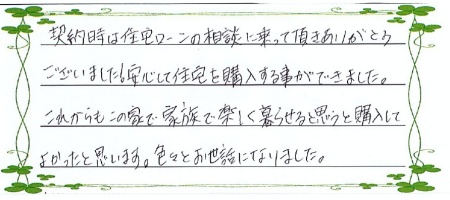 契約時は住宅ローンの相談に乗って頂きありがとう
ございました！安心して住宅を購入する事ができました。
これからもこの家で家族で楽しく暮らせると思うと購入して
よかったと思います。色々とお世話になりました。